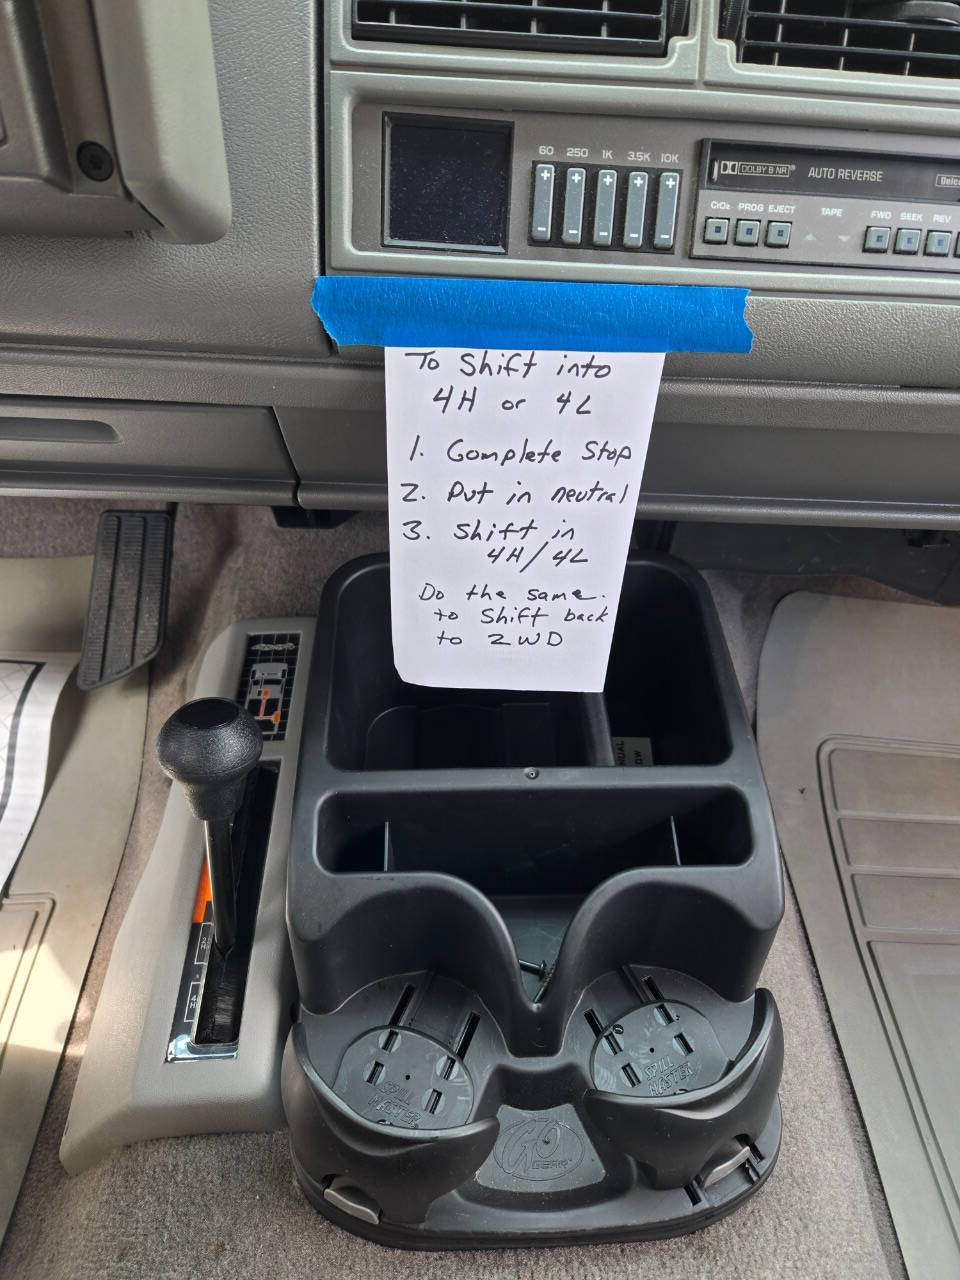 60 250 1K 3.5K 10K
DOLBY B NR
AUTO REVERSE
Delco
CrO₂ PROG EJECT TAPE FWD SEEK REV
To Shift into
4H or 4L
1. Complete Stop
2. Put in neutral
3. Shift in
4H/4L
Do the same.
to Shift back
to 2WD
4X4
2
H
4
H
SPILL
MASTER
SPILL
MASTER
GO
GEAR